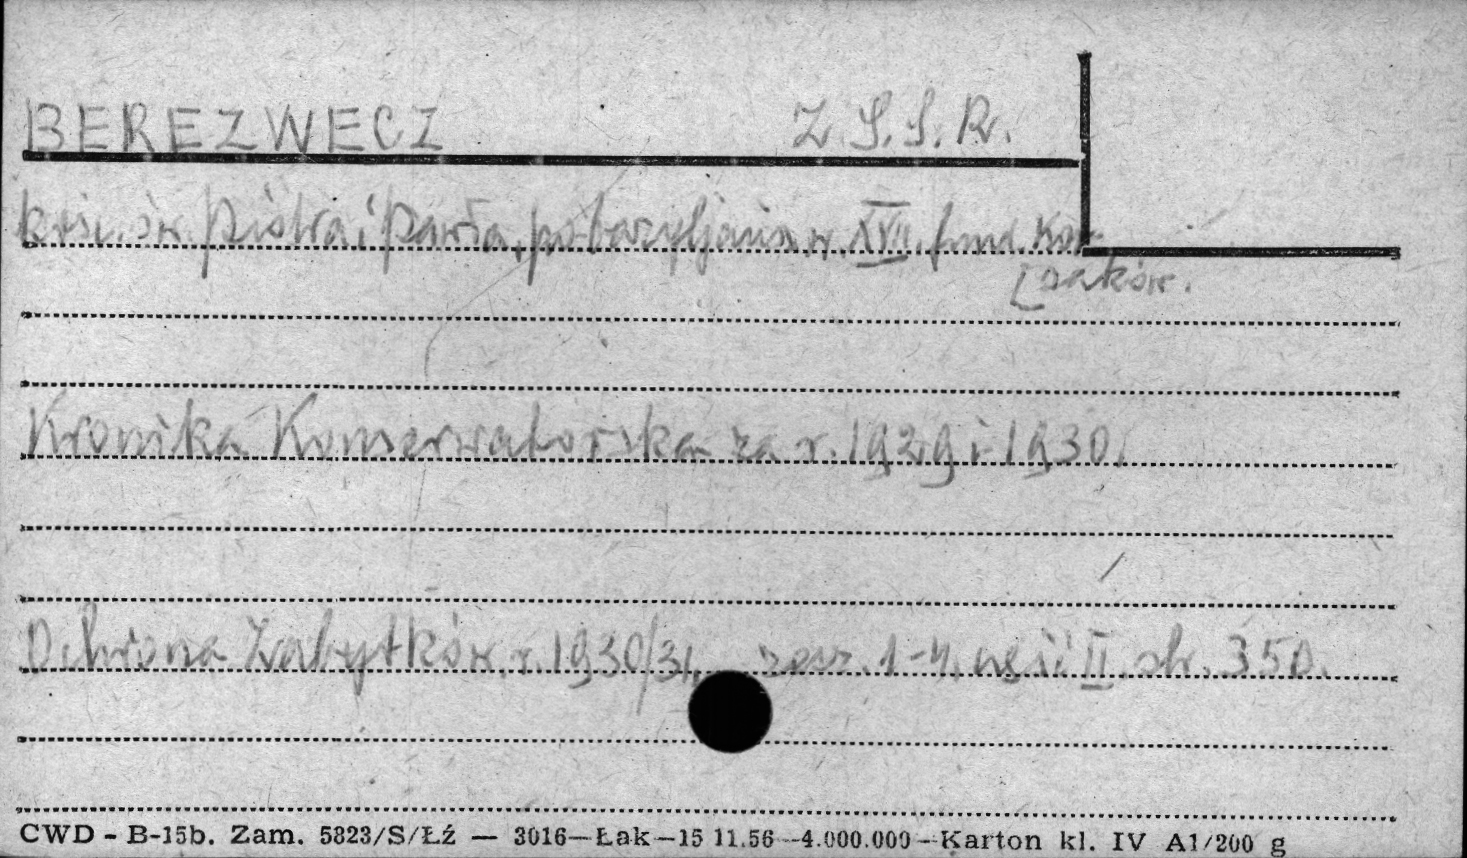 BEREZWECZ Z.S.S.R.
kośc. św. Piotra i Pawła, po-bazyljański w. XVII. fund. Kor-
[saków.
Kronika Konserwatorska za r. 1929 i 1930.
Ochrona Zabytków r. 1930/31, zesz. 1-4, część II. str. 350.
CWD - B-15b. Zam. 5823/S/Łź — 3016—Łak—15 11.56—4.000.000—Karton kl. IV A1/200 g